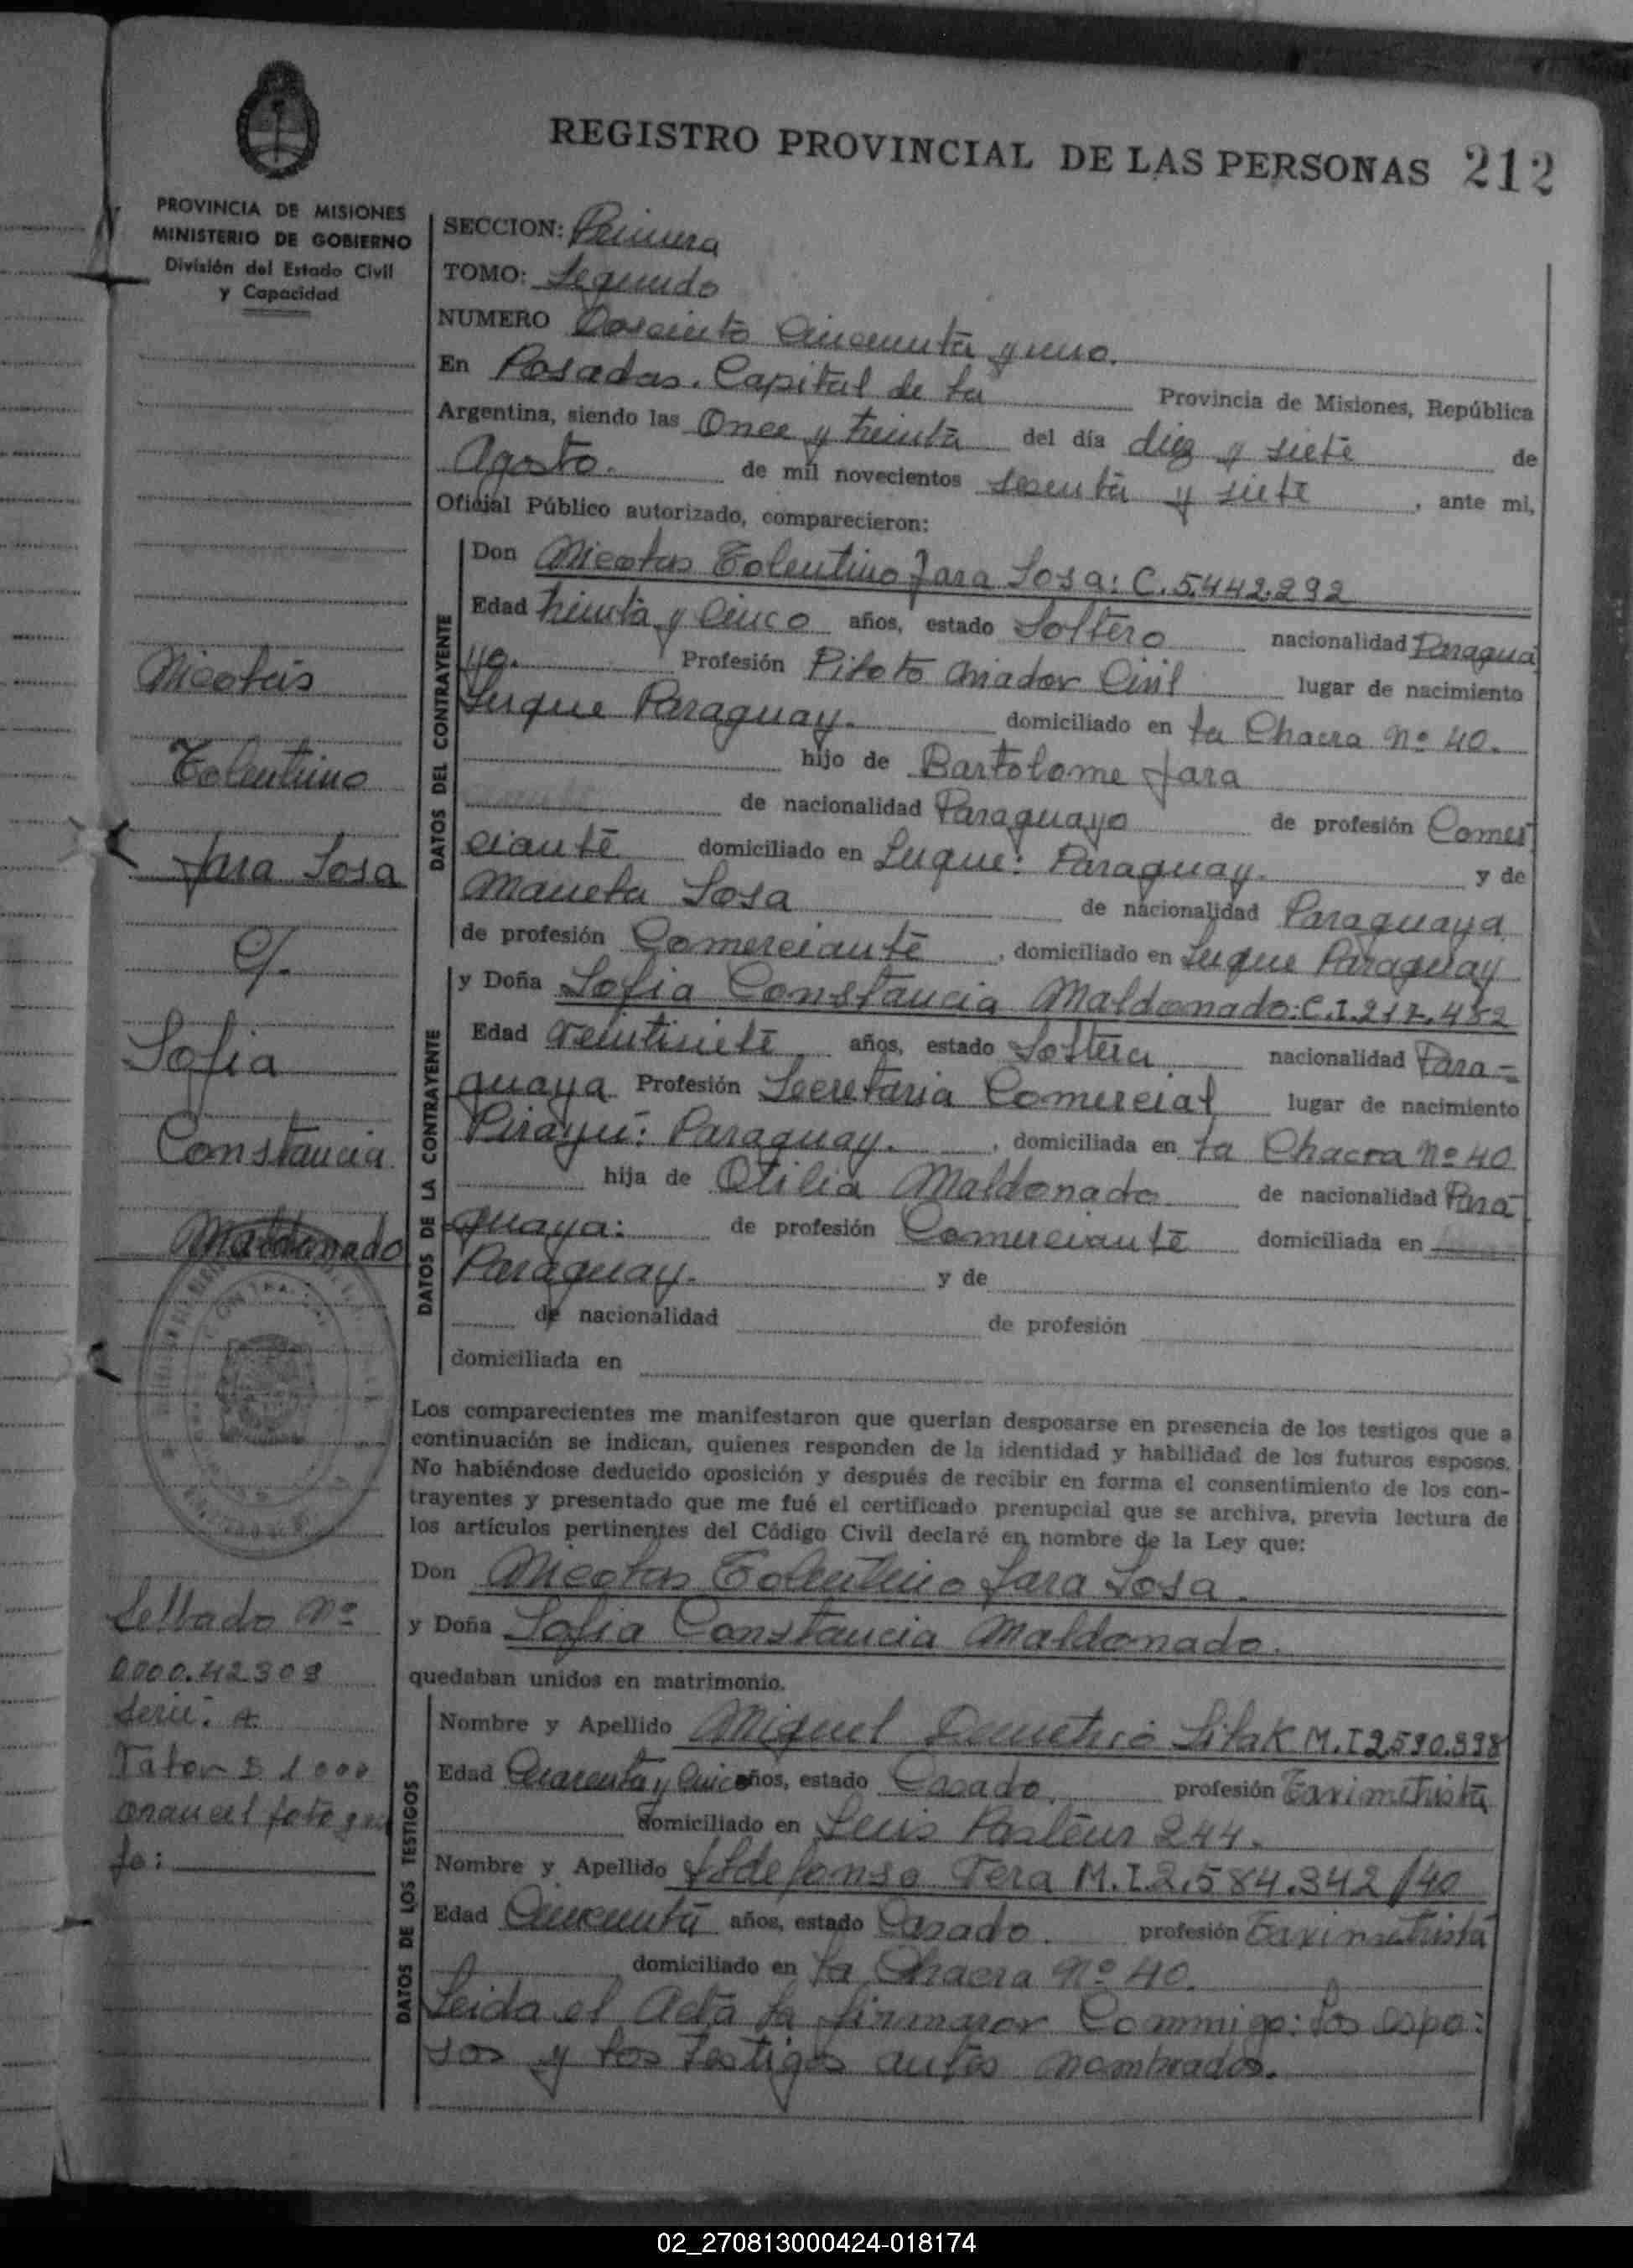 REGISTRO PROVINCIAL DE LAS PERSONAS 212
PROVINCIA DE MISIONES
MINISTERIO DE GOBIERNO
División del Estado Civil
y Capacidad
SECCION: Primera
TOMO: Segundo
NUMERO Dosciento Cincuenta y uno.
En Posadas. Capital de la Provincia de Misiones, República
Argentina, siendo las Once y treinta del día diez y siete de
Agosto. de mil novecientos sesenta y siete, ante mi,
Oficial Público autorizado, comparecieron:
DATOS DEL CONTRAYENTE
Don Nicolas Tolentino Jara Sosa: C. 5.442.292
Edad treinta y Cinco años, estado Soltero nacionalidad Paragua
yo. Profesión Piloto Aviador Civil lugar de nacimiento
Luque Paraguay. domiciliado en la Chacra Nº 40.
hijo de Bartolome Jara
de nacionalidad Paraguayo de profesión Comer
ciante domiciliado en Luque: Paraguay. y de
Manuela Sosa de nacionalidad Paraguaya
de profesión Comerciante, domiciliado en Luque Paraguay
DATOS DE LA CONTRAYENTE
y Doña Sofia Constancia Maldonado: C.I. 217.482
Edad Veintisiete años, estado Soltera nacionalidad Para=
guaya Profesión Secretaria Comercial lugar de nacimiento
Pirayú: Paraguay., domiciliada en la Chacra Nº 40
hija de Otilia Maldonado de nacionalidad Para
guaya: de profesión Comerciante domiciliada en
Paraguay. y de
de nacionalidad de profesión
domiciliada en
Los comparecientes me manifestaron que querían desposarse en presencia de los testigos que a
continuación se indican, quienes responden de la identidad y habilidad de los futuros esposos.
No habiéndose deducido oposición y después de recibir en forma el consentimiento de los con-
trayentes y presentado que me fué el certificado prenupcial que se archiva, previa lectura de
los artículos pertinentes del Código Civil declaré en nombre de la Ley que:
Don Nicolas Tolentino Jara Sosa.
y Doña Sofia Constancia Maldonado.
quedaban unidos en matrimonio.
DATOS DE LOS TESTIGOS
Nombre y Apellido Miguel Demetrio Litak M.I 2.590.398
Edad Cuarenta y Cinco años, estado Casado. profesión Taximetrista
domiciliado en Luis Pasteur 244.
Nombre y Apellido Ildefonso Tera M.I. 2.584.342/40
Edad Cincuenta años, estado Casado. profesión Taximetrista
domiciliado en la Chacra Nº 40.
Leida el Acta la firmaror Commigo: los espo:
sos y los testigos antes nombrados.
Nicolás
Tolentino
Jara Sosa
C/.
Sofia
Constancia
Maldonado
Sellado Nº
0000.42303
Serie: A.
Valor $ 1000
02_270813000424-018174